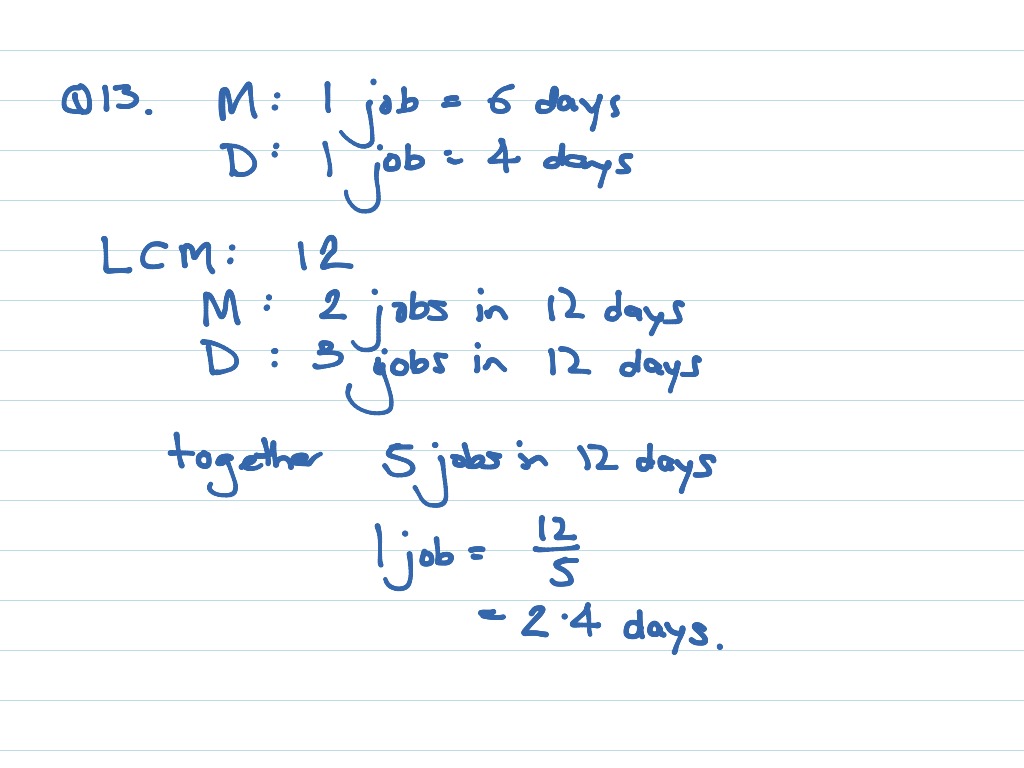 Q13. M: 1 job = 6 days
D: 1 job = 4 days
LCM: 12
M: 2 jobs in 12 days
D: 3 jobs in 12 days
together 5 jobs in 12 days
1 job = 12/5
= 2.4 days.